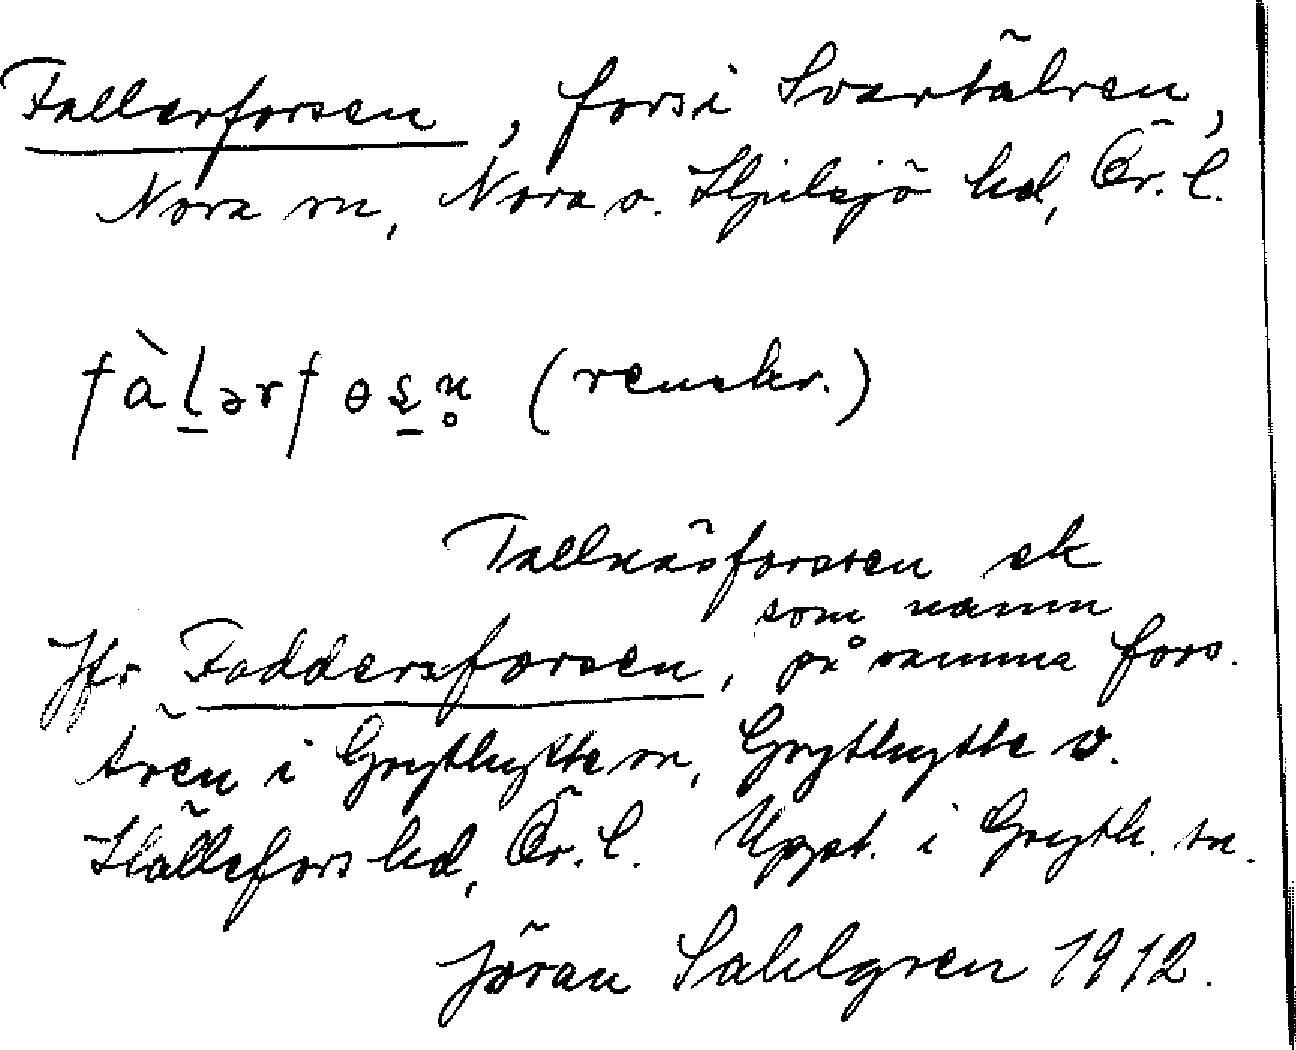 Fallerforsen, fors i Svartälven,
Nora sn, Nora o. Hjulsjö hd, Ör. l.
fàlərfosn (renskr.)
Tallnäsforsen ek
som namn
Jfr Foddersforsen, på samma fors.
även i Grythytte sn, Grythytte o.
Hällefors hd, Ör. l. Uppt. i Gryth. sn.
Jöran Sahlgren 1912.